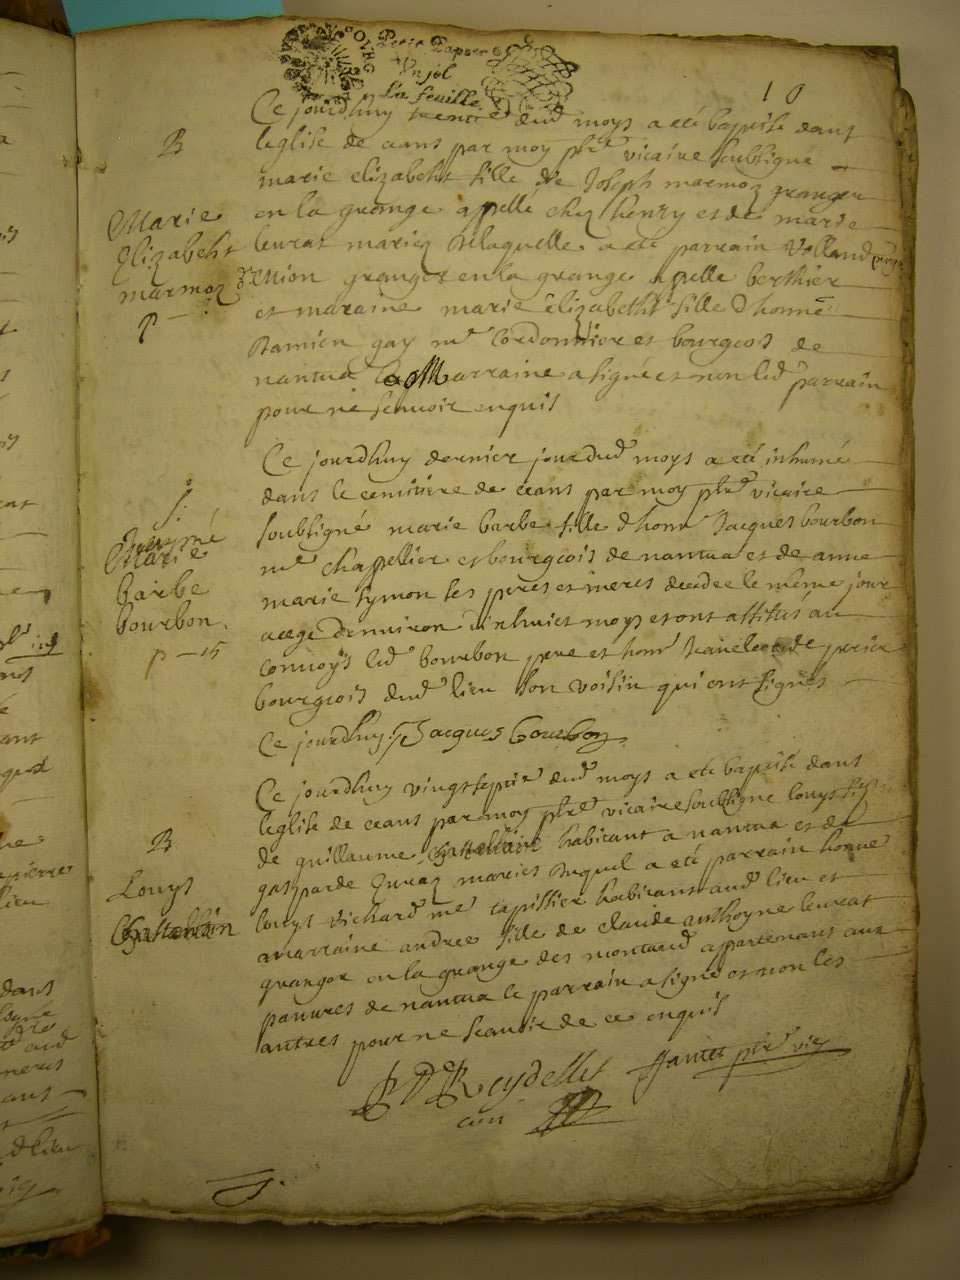 Petit Papier
Un sol
La feuille
10
B
Marie
Elizabeht
marmoz
p —
Ce jourdhuy trente dud moys a eté baptisé dans
leglise de ceans par moy pbre vicaire soubsigné
marie elizabeht fille de Joseph marmoz granger
en la grange appellé chez henry et de marie
leurat mariez de laquelle a eté parrain
granger en la grange apellé berthier
et maraine marie elizabeht fille d honne
damien gay me Cordonnier et bourgeois de
nantua la Marraine a signé et non led parrain
pour ne scauoir enquis
Inhumé
Marie
barbe
bourbon
p — 15
Ce jourdhuy dernier jour dud moys a eté inhumé
dans le cemitiere de ceans par moy pbre vicaire
soubsigné marie barbe fille d honn Jacques bourbon
me chapellier et bourgeois de nantua et de anne
marie symon ses peres et meres decedee le même jour
aagé denuiron dixhuict moys et ont assités au
conuoys led bourbon pere et honn perier
bourgeois dud lieu son voisin qui ont signés
Ce jourdhuy Jacques bourbon
B
Louys
Chastellain
Ce jourdhuy vingt septie dud moys a eté baptisé dans
leglise de ceans par moy pbre vicaire soubsigné louys fils
de guillaume Chastellain habitant a nantua et de
gasparde Juraz mariés duquel a eté parrain honne
louys Vichard me tapissier habitant aud lieu et
marraine andree fille de claude anthoyne leurat
granger en la grange des montaud appartenant aux
pauures de nantua le parrain a signé et non les
autres pour ne scauoir de ce enquis
Reydellet
curé
Jantet pbre vic